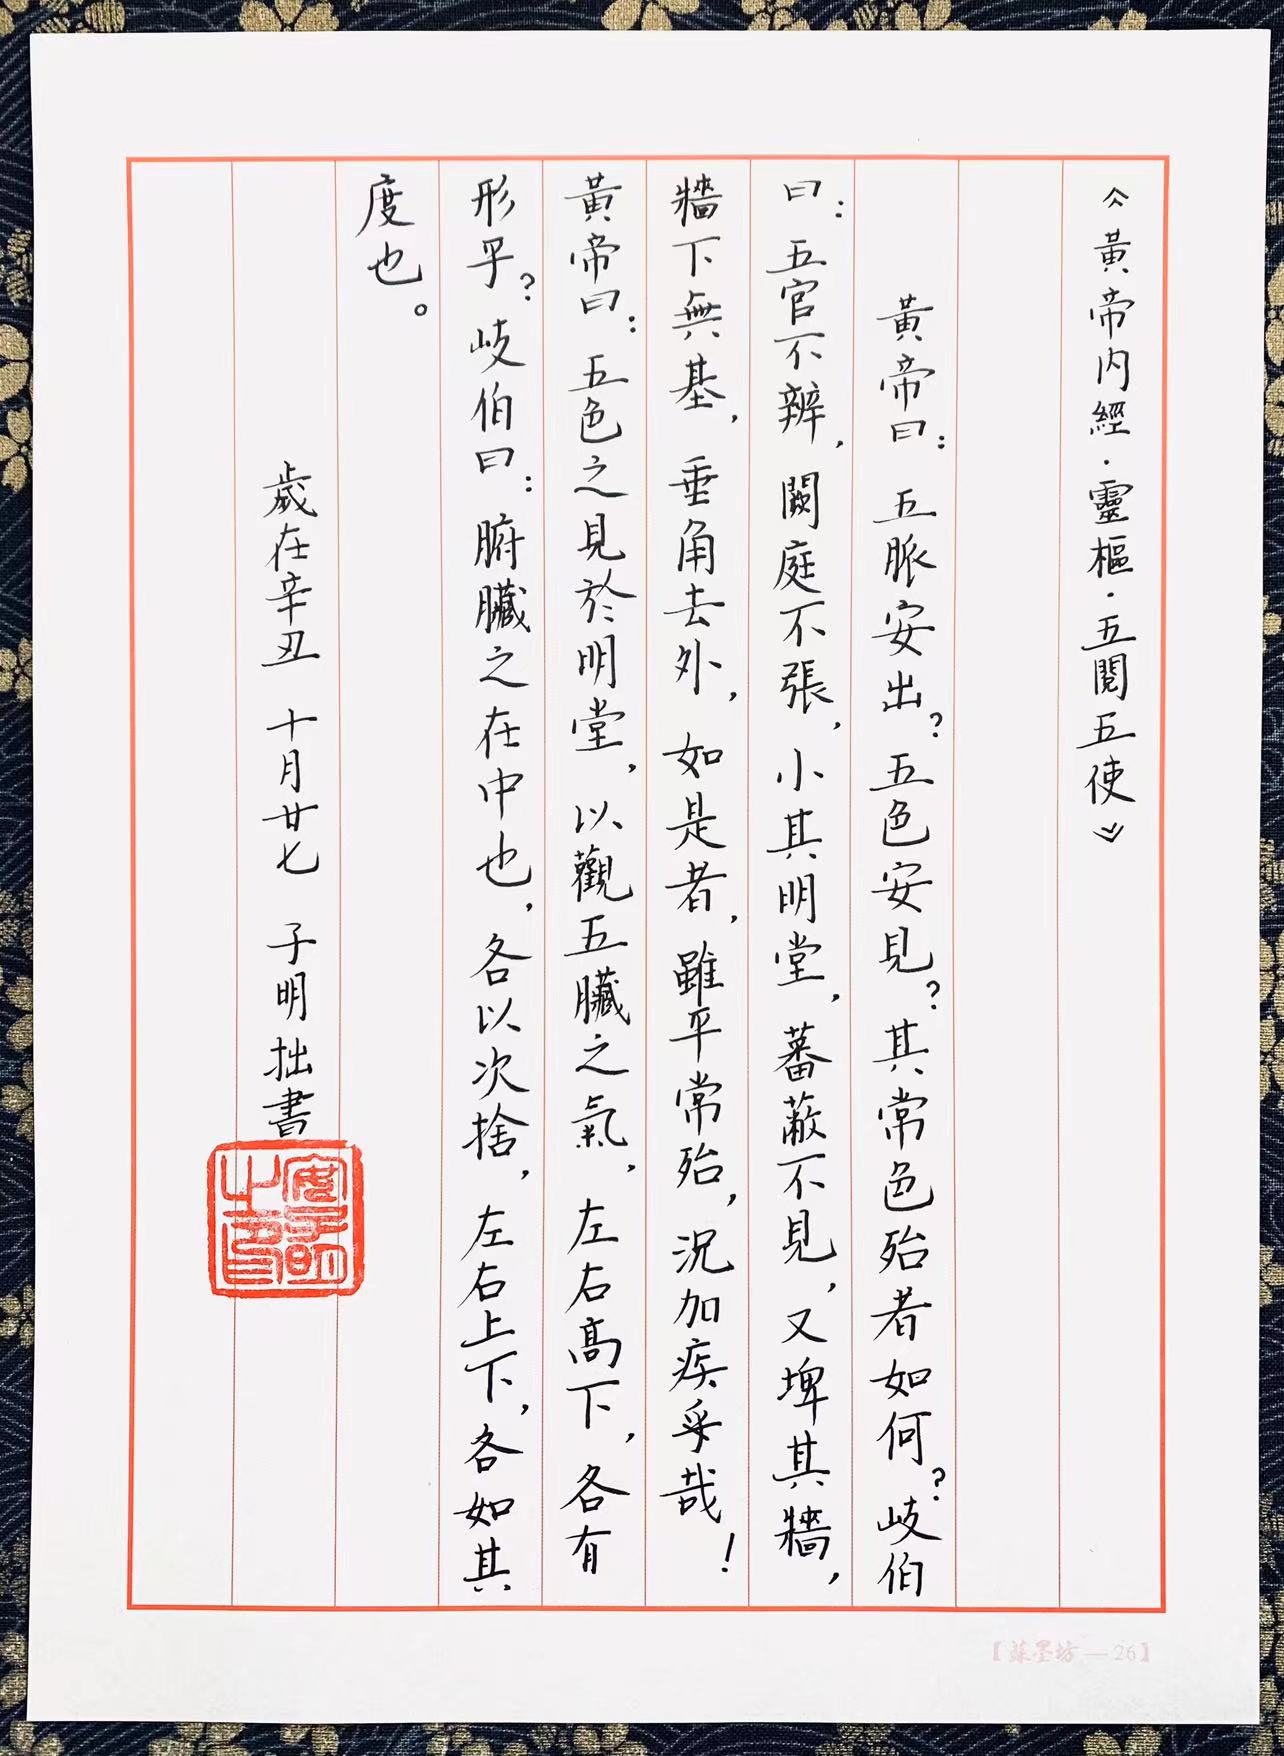 《黃帝內經·靈樞·五閱五使》
黃帝曰：五脈安出？五色安見？其常色殆者如何？岐伯
曰：五官不辨，闕庭不張，小其明堂，蕃蔽不見，又埤其牆，
牆下無基，垂角去外，如是者，雖平常殆，況加疾乎哉！
黃帝曰：五色之見於明堂，以觀五臟之氣，左右高下，各有
形乎？岐伯曰：腑臟之在中也，各以次捨，左右上下，各如其
度也。
歲在辛丑 十月廿七 子明拙書
【蘇墨坊—26】